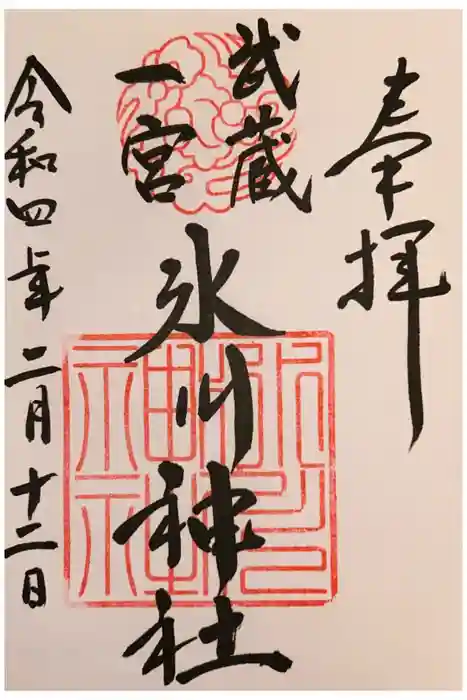 奉拝
武蔵
一宮
氷川神社
令和四年二月十二日
氷川神社